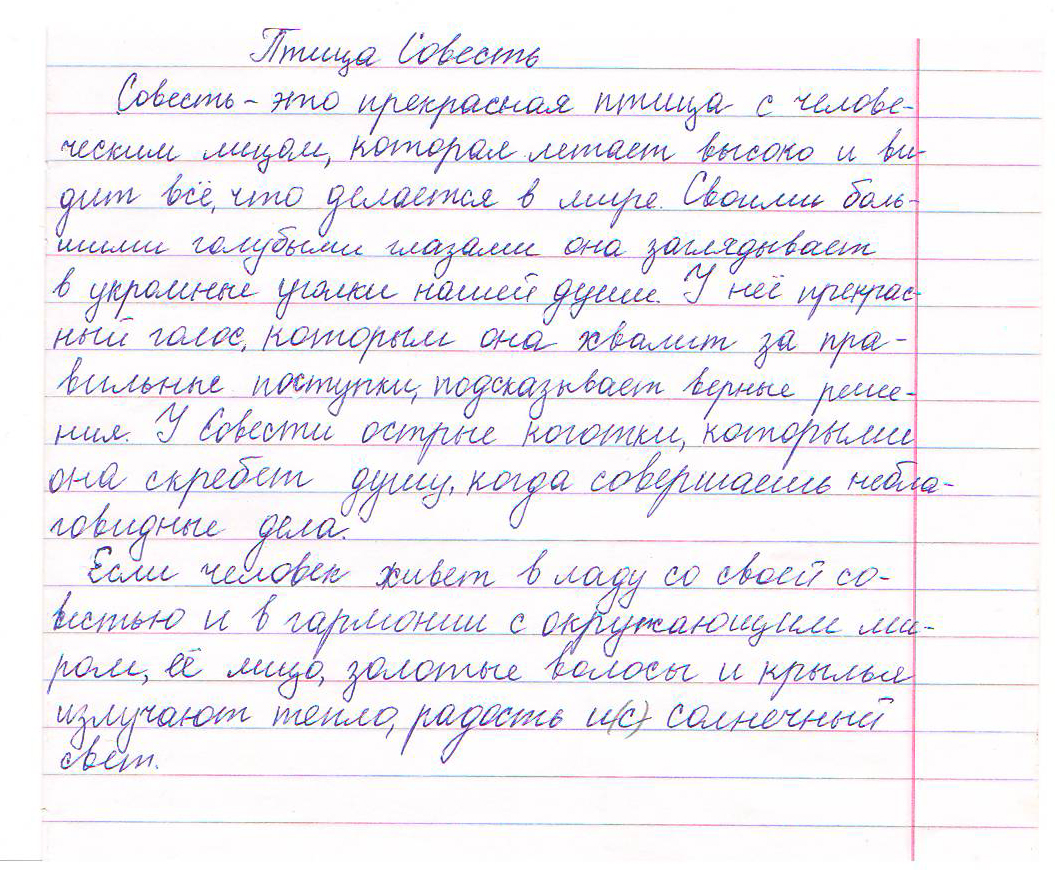 Птица Совесть
Совесть - это прекрасная птица с челове-
ческим лицом, которая летает высоко и ви-
дит всё, что делается в мире. Своими боль-
шими голубыми глазами она заглядывает
в укромные уголки нашей души. У неё прекрас-
ный голос, которым она хвалит за пра-
вильные поступки, подсказывает верные реше-
ния. У Совести острые коготки, которыми
она скребёт душу, когда совершаешь небла-
говидные дела.
Если человек живёт в ладу со своей со-
вестью и в гармонии с окружающим ми-
ром, её лицо, золотые волосы и крылья
излучают тепло, радость и (с) солнечный
свет.